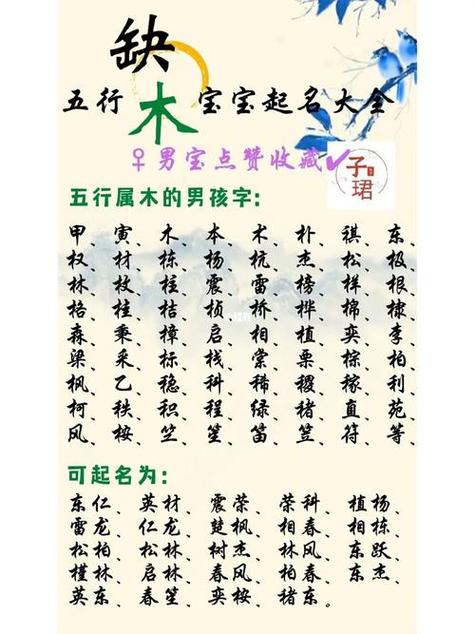 缺
五行木宝宝起名大全
♀男宝点赞收藏✓
子珺
五行属木的男孩字:
甲、寅、木、本、术、朴、祺、东、
权、材、栋、杨、杭、杰、松、极、
林、枚、柱、震、雷、榜、样、根、
格、桂、桔、桢、桥、桦、棉、棣、
森、秉、樟、启、相、植、奕、李、
梁、采、标、栈、棠、栗、棕、柏、
枫、乙、稳、科、稀、稷、稼、利、
柯、秩、积、程、绿、楮、直、苑、
风、桉、竺、笙、笛、笠、符、等、
可起名为:
东仁、英材、震荣、荣科、植杨、
雷龙、仁龙、楚枫、相春、相栋、
松柏、松林、树杰、林风、东跃、
槿林、启林、春风、柏春、东杰、
英东、春笙、奕桉、楮东。